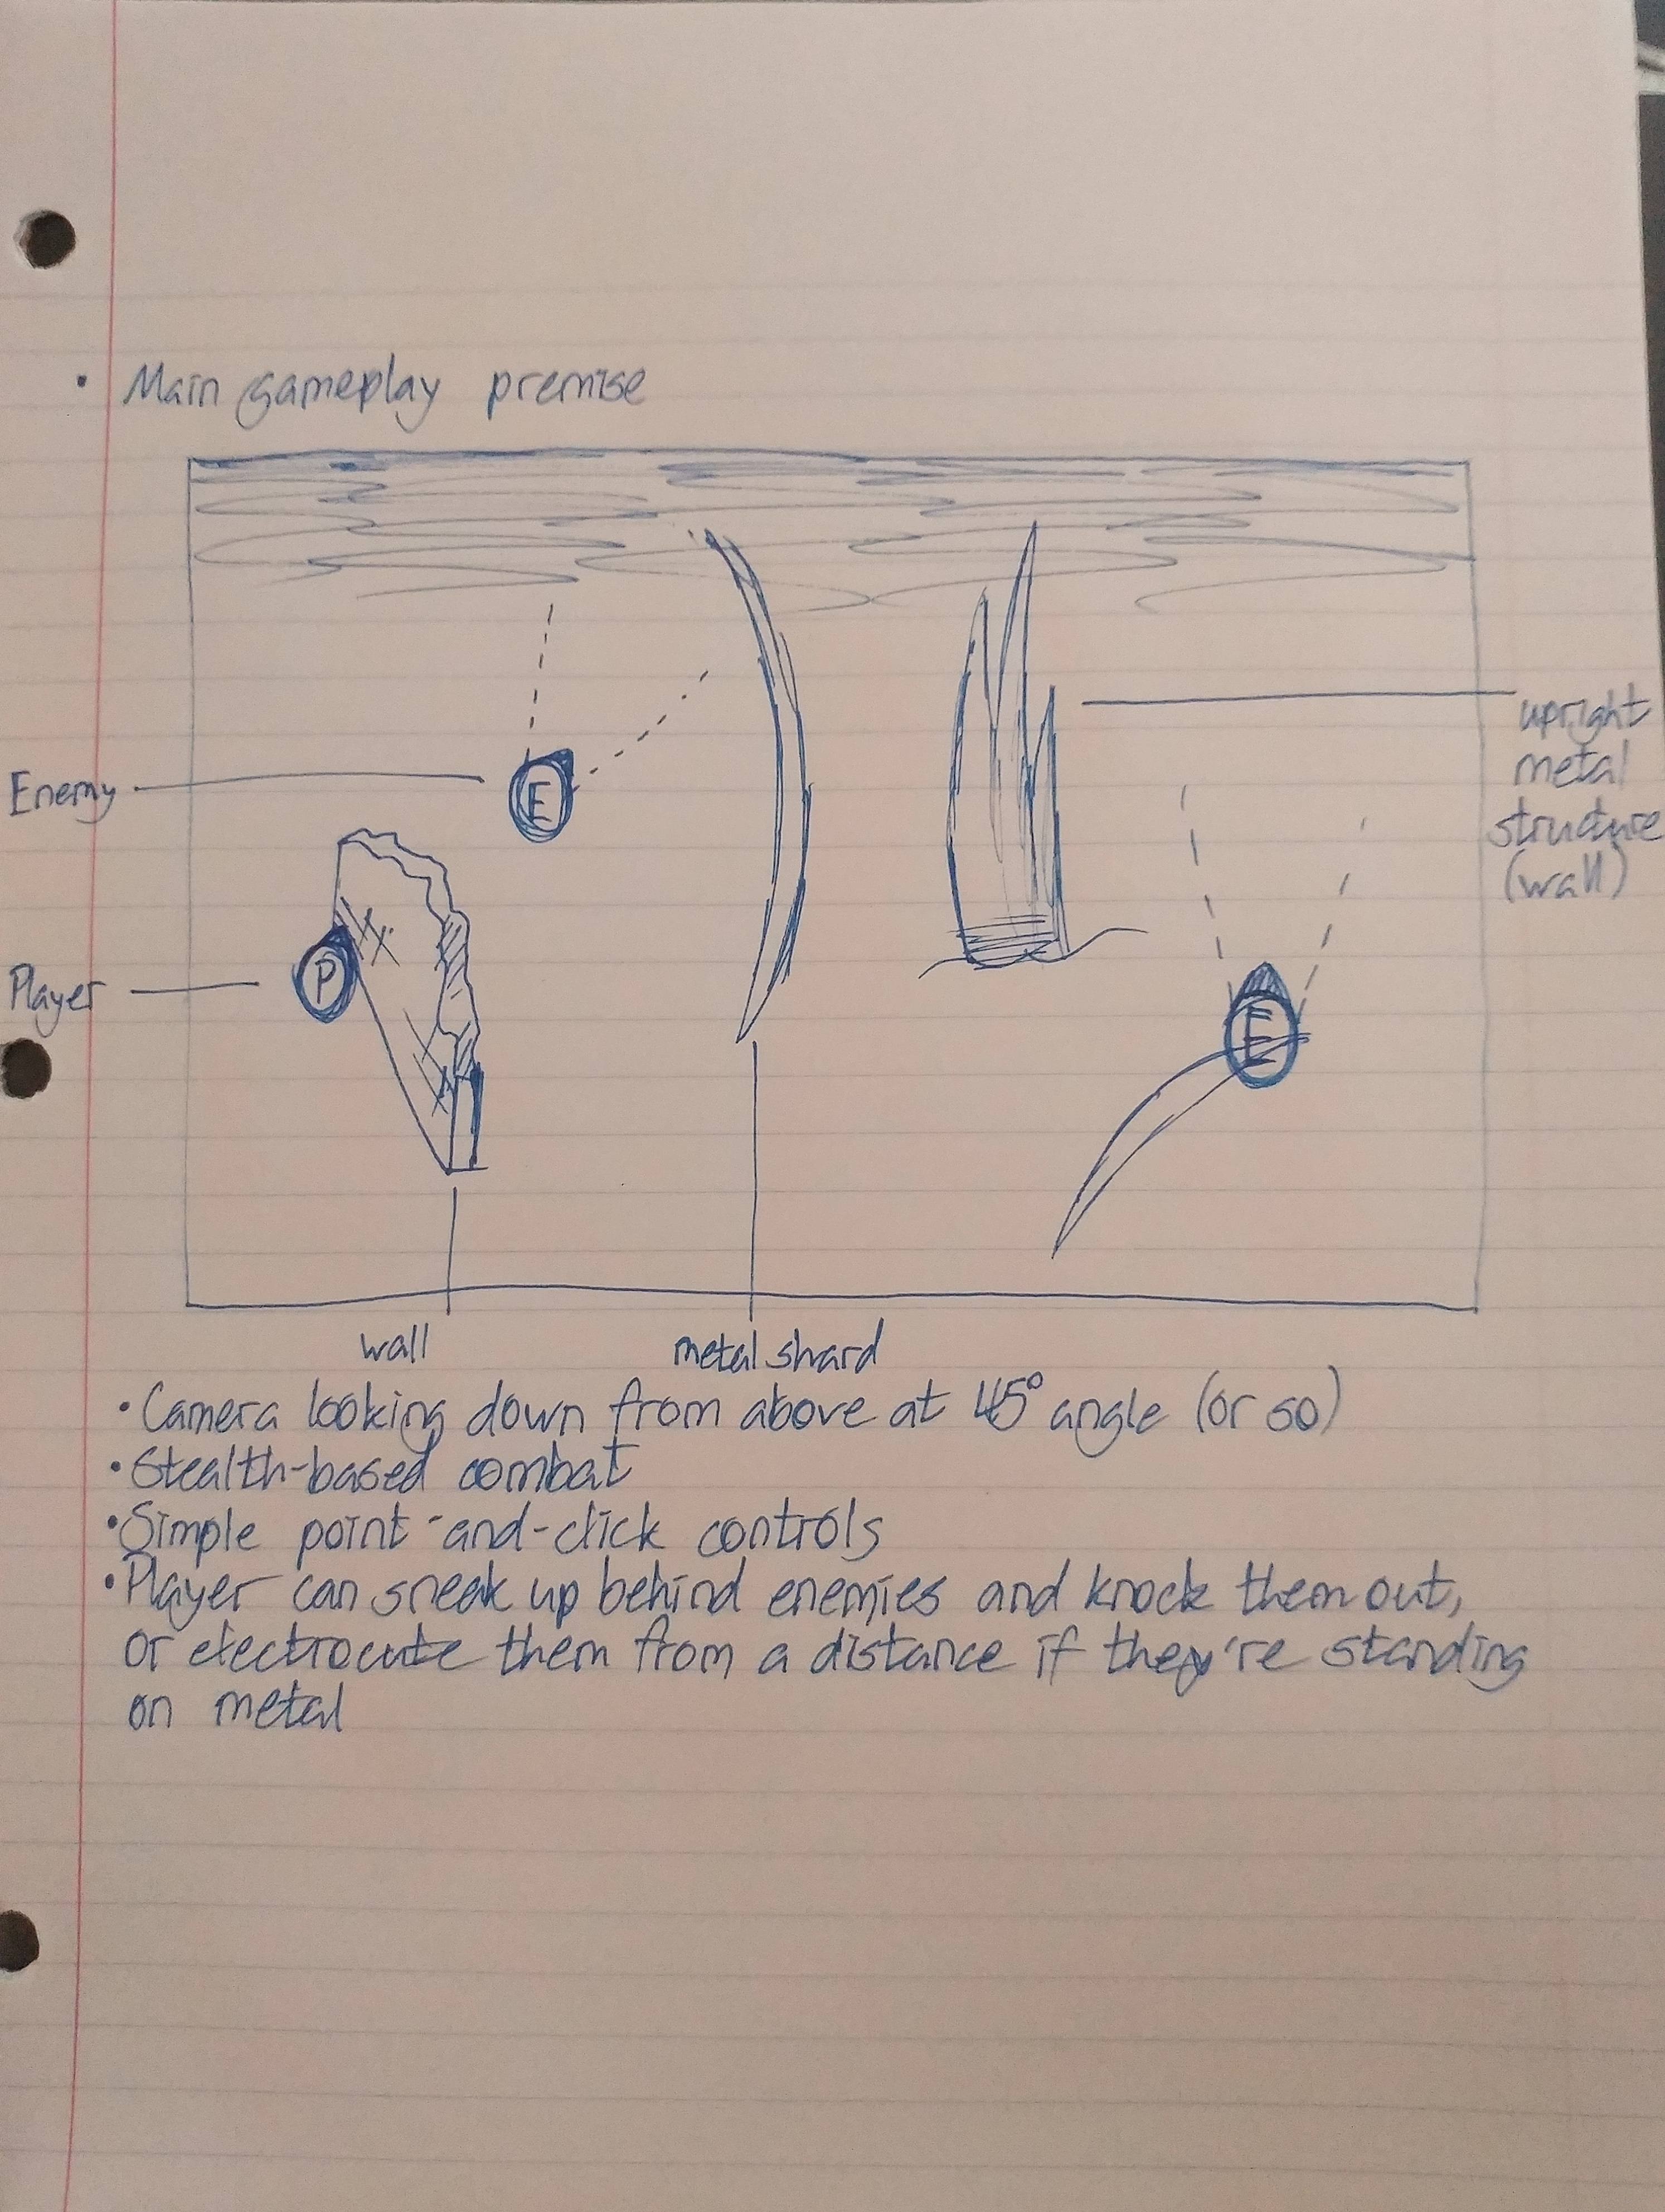 • Main gameplay premise
upright
metal
structure
(wall)
Enemy
E
Player
P
E
wall
metal shard
• Camera looking down from above at 45° angle (or so)
• Stealth-based combat
• Simple point-and-click controls
• Player can sneak up behind enemies and knock them out,
or electrocute them from a distance if they're standing
on metal